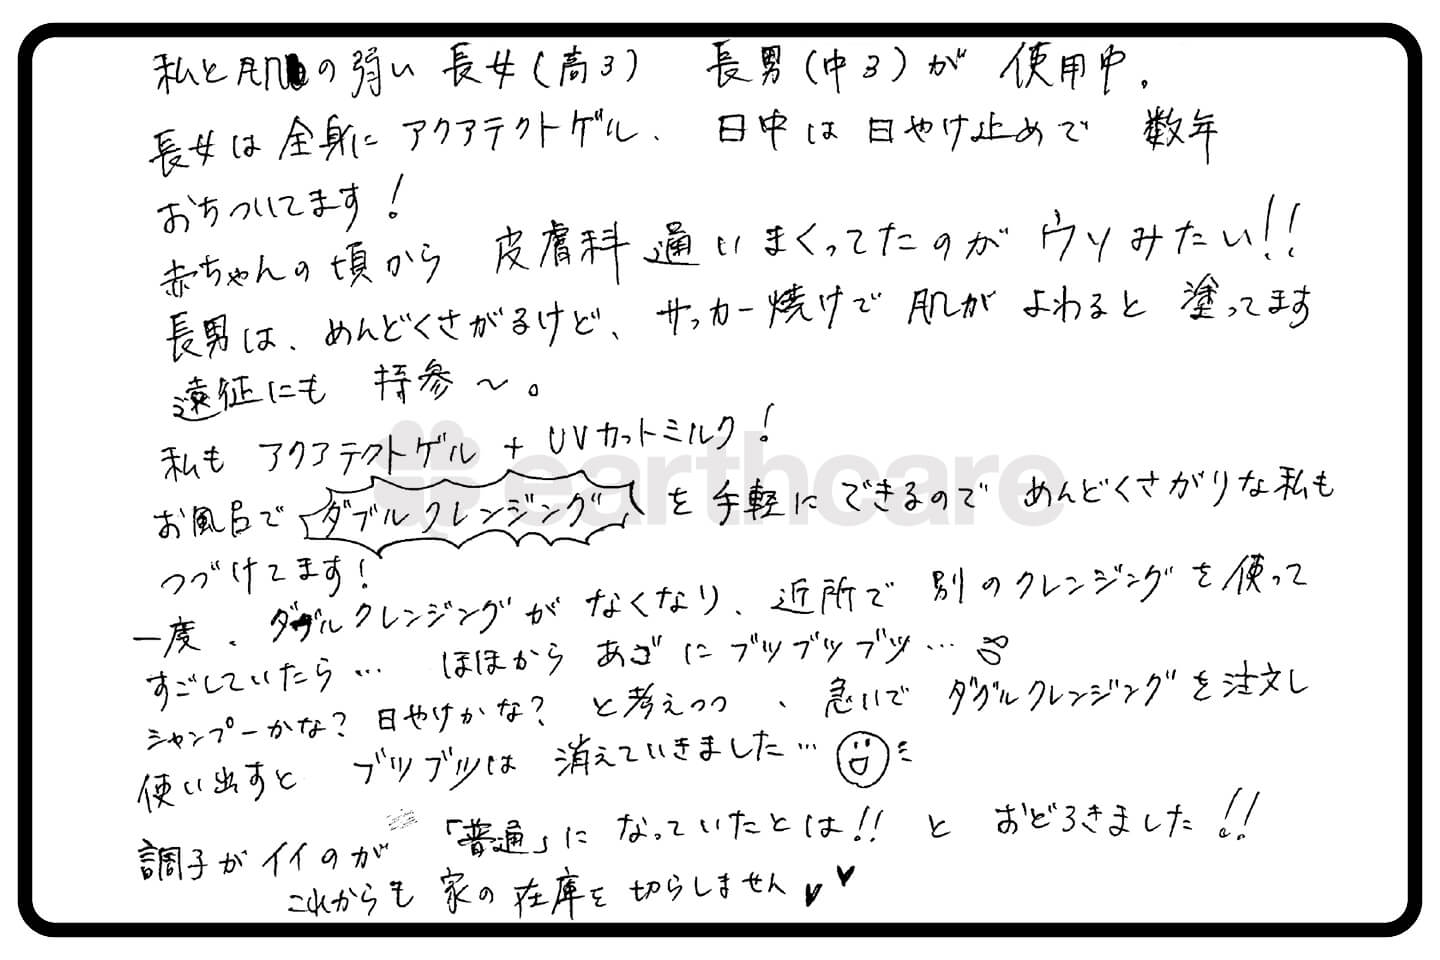 私と肌の弱い長女(高3) 長男(中3)が 使用中。
長女は全身に アクアテクトゲル、 日中は日やけ止めで 数年
おちついてます!
赤ちゃんの頃から 皮膚科 通いまくってたのが ウソみたい!!
長男は、めんどくさがるけど、サッカー焼けで 肌が よわると 塗ってます
遠征にも 持参〜。
私も アクアテクトゲル + UVカットミルク!
earthcare
お風呂で ダブルクレンジング を手軽にできるので めんどくさがりな私も
つづけてます!
一度、ダブルクレンジングが なくなり、近所で 別のクレンジングを使って
すごしていたら… ほほから あごにブツブツブツ…
シャンプーかな? 日やけかな? と考えつつ、急いで ダブルクレンジングを注文し
使い出すと ブツブツは 消えていきました…
調子がイイのが 「普通」に なっていたとは!! と おどろきました!!
これからも 家の在庫を 切らしません♥♥